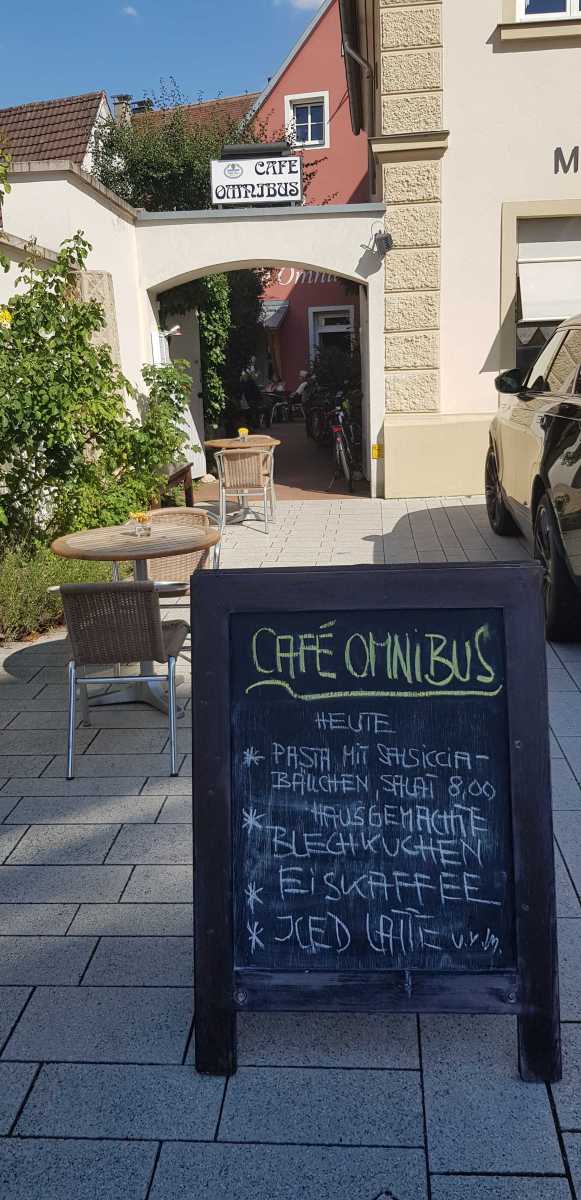 CAFE
OMNIBUS
M
Omni
CAFÉ OMNIBUS
HEUTE
* PASTA MIT SALSICCIA-
BÄLLCHEN, SALAT 8,00
* HAUSGEMACHTE
BLECHKUCHEN
* EISKAFFEE
* ICED LATTE u.v.m.